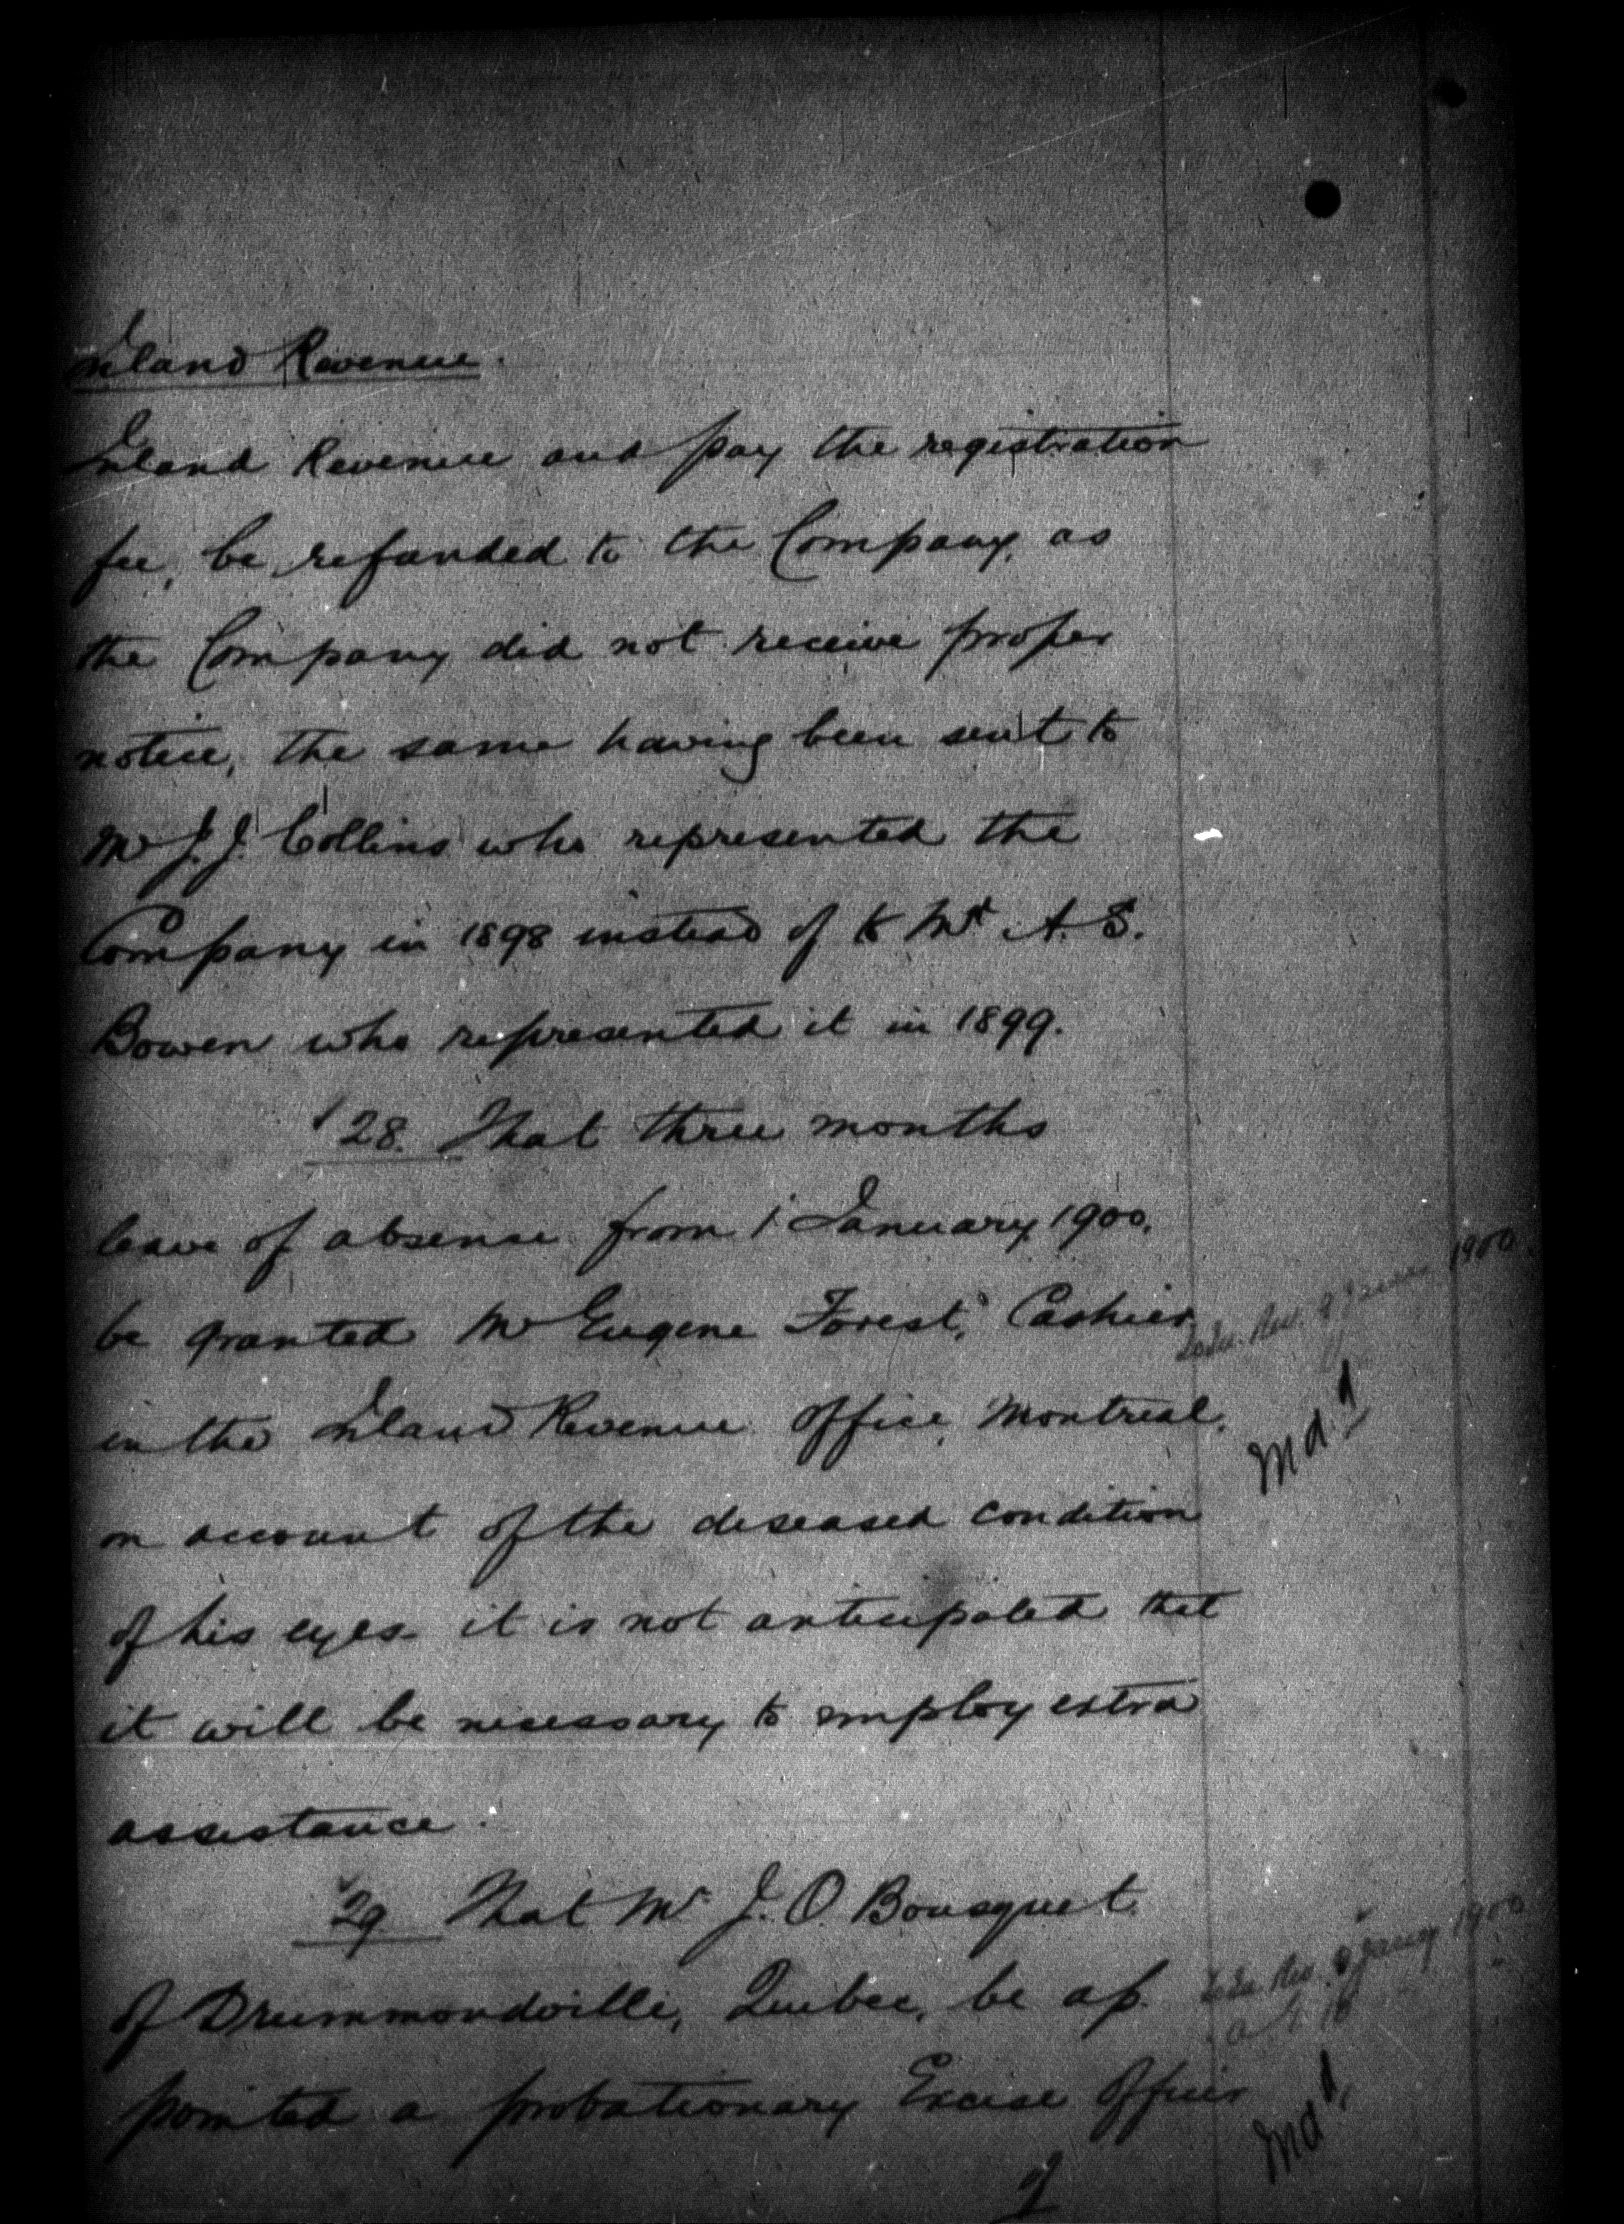 Inland Revenue.
Inland Revenue and pay the registration
fee, be refunded to the Company, as
the Company did not receive proper
notice, the same having been sent to
Mr J. J. Collins who represented the
Company in 1898 instead of to Mr A. S.
Bowen who represented it in 1899.
28. That three months
leave of absence from 1 January 1900.
be granted Mr Eugene Forest, Cashier
in the Inland Revenue Office, Montreal,
on account of the diseased condition
of his eyes - it is not anticipated that
it will be necessary to employ extra
assistance.
29. That Mr J. O. Bousquet
of Drummondville, Quebec, be ap-
pointed a probationary Excise Officer
of
Rev. 9 1900.
Rev. 9 Jany 1900